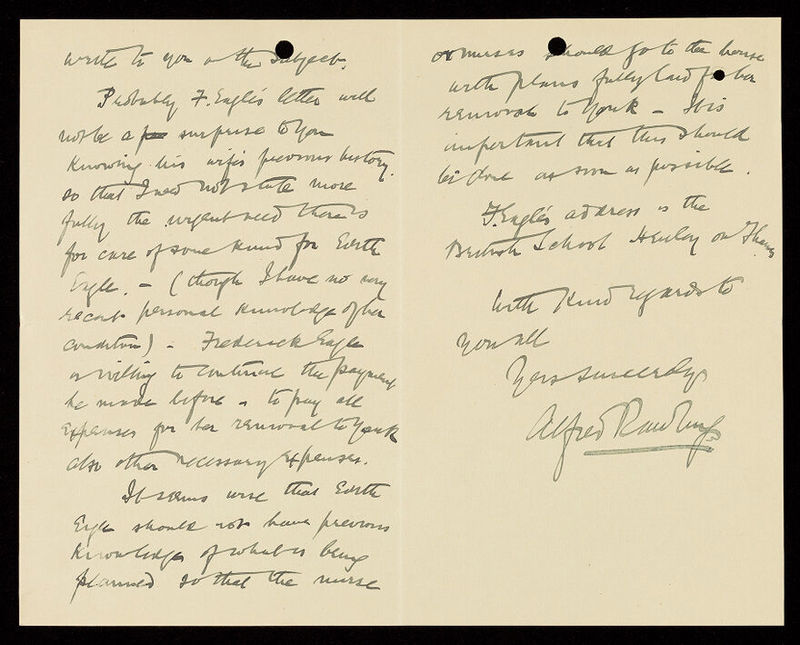 write to you on the subject.
Probably F. Eagle's letter will
not be a surprise to you
knowing his wife's previous history.
so that I need not state more
fully the urgent need there is
for care of some kind for Edith
Eagle. — (though I have no very
recent personal knowledge of her
condition) — Frederick Eagle
is willing to continue the payment
he made before & to pay all
expenses for her removal to York
also other necessary expenses.
It seems wise that Edith
Eagle should not have previous
knowledge of what is being
planned so that the nurse
or nurses should go to the house
with plans fully laid for her
removal to York — It is
important that this should
be done as soon as possible.
F. Eagle's address is the
British School Henley on Thames
With kind regards to
you all
Yours sincerely
Alfred Rawlings